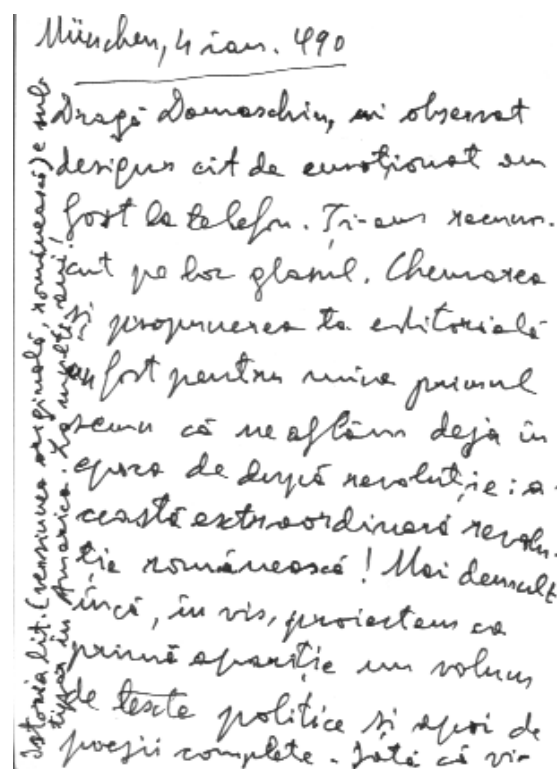 München, 4 ian. 990
Dragă Damaschin, ai observat
desigur cît de emoționat am
fost la telefon. Ți-am recunos-
cut pe loc glasul. Chemarea
și propunerea ta editorială
au fost pentru mine primul
semn că ne aflăm deja în
epoca de după revoluție: a-
ceastă extraordinară revolu-
ție românească! Mai demult
încă, în vis, proiectam ca
primă apariție un volum
de texte politice și apoi de
poezii complete. Iată că vi-
Istoria lit. (versiunea originală, românească) e sub
tipar în America. La mulți ani!